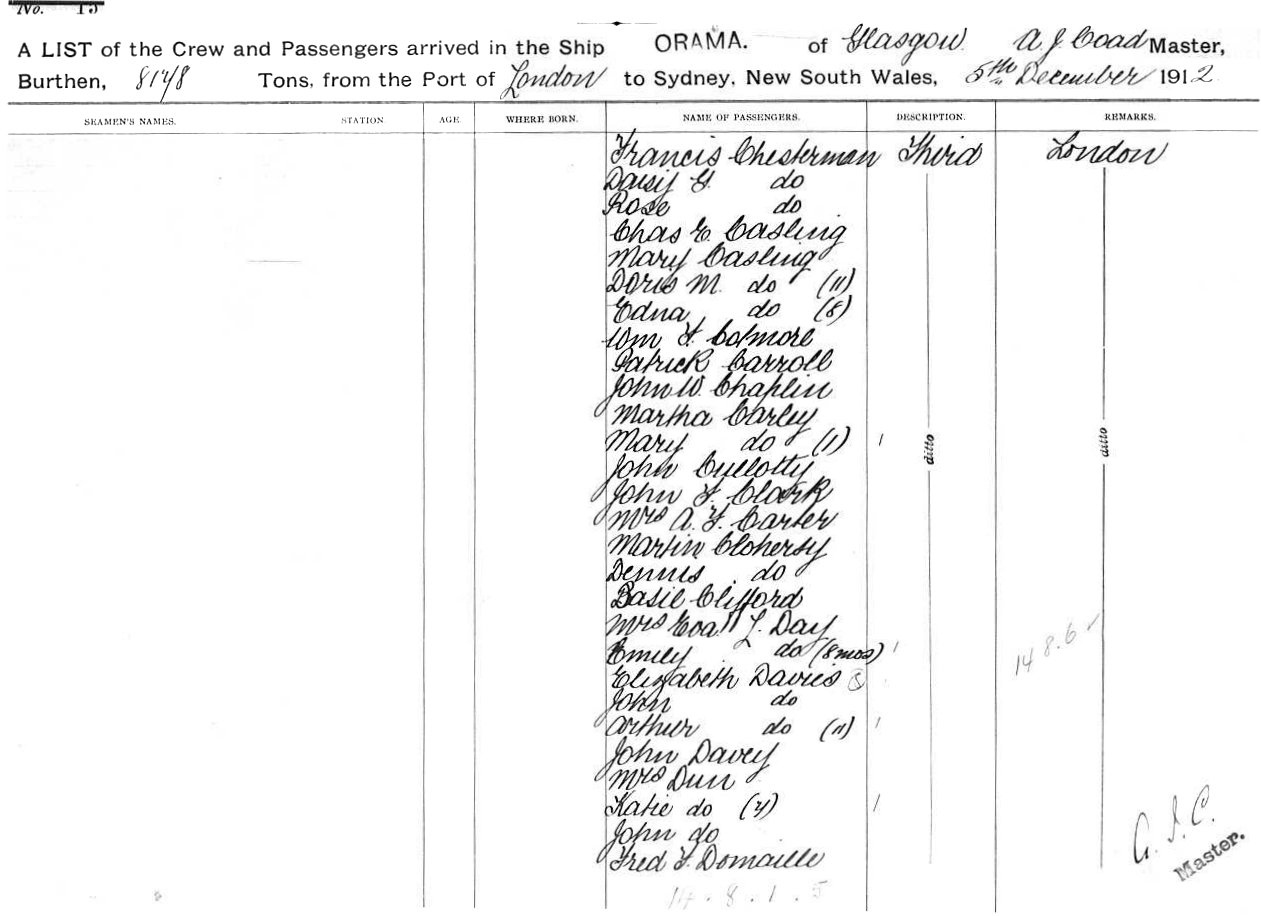 No. 15
A LIST of the Crew and Passengers arrived in the Ship ORAMA. of Glasgow A. J. Coad Master,
Burthen, 8148 Tons, from the Port of London to Sydney, New South Wales, 5th December 1912
SEAMEN'S NAMES. STATION AGE. WHERE BORN. NAME OF PASSENGERS. DESCRIPTION. REMARKS.
Francis Chesterman Third London
Daisy G. do
Rose do
Chas E. Casling
Mary Casling
Doris M. do (11)
Edna do (8)
Wm F. Colmore
Patrick Carroll
John W. Chaplin
Martha Carley
Mary do (1) 1 ditto ditto
John Cullotty
John F. Clark
Mrs A. F. Carter
Martin Clohersy
Dennis do
Basil Clifford
Mrs Eva L. Day
Emily do (8mos) 1
14 8.6 ✓
Elizabeth Davies
John do
Arthur do (11) 1
John Davey
Mrs Dun
Katie do (4) 1
John do
Fred F. Domaille
A. J. C.
Master.
14 . 8 . 1 . 5